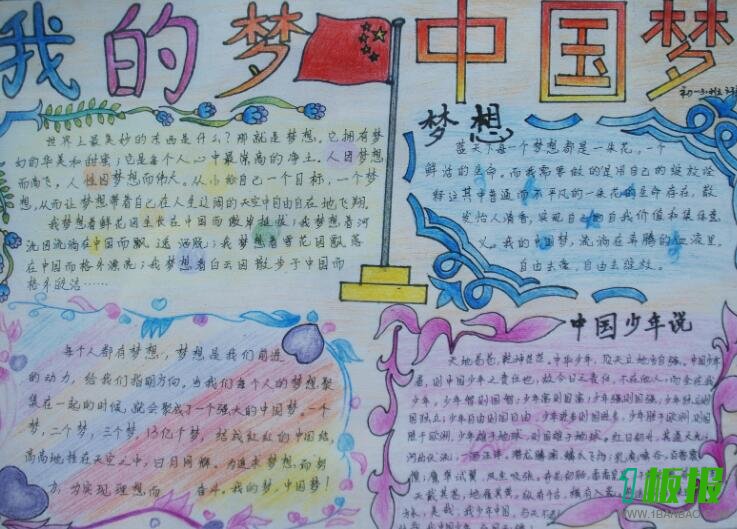 我的梦 中国梦
初一
世界上最美妙的东西是什么？那就是梦想。它拥有梦
幻的华美和甜蜜；它是每个人心中最崇高的净土。人因梦想
而高飞，人性因梦想而伟大。从小给自己一个目标，一个梦
想，从而让梦想带着自己在人生辽阔的天空中自由自在地飞翔。
我梦想着鲜花因生长在中国而傲岸挺拔；我梦想着河
流因流淌在中国而飘逸洒脱；我梦想着雪花因飘落
在中国而格外漂亮；我梦想着白云因散步于中国而
格外皎洁……
梦想
蓝天下每一个梦想都是一朵花，一个
鲜活的生命，而我需要做的是用自己的绽放诠
释这其中普通而不平凡的一朵花的生命存在，散
发怡人清香，实现自己的自我价值和集体意
义。我的中国梦，流淌在奔腾的血液里，
自由去爱，自由去绽放。
每个人都有梦想，梦想是我们前进
的动力，给我们指明方向。当我们每个人的梦想聚
集在一起的时候，就会聚成了一个强大的中国梦。一个
梦，二个梦，三个梦，13亿个梦，结成红红的中国结，
高高地挂在天空之中，日月同辉。为追求梦想而努
力，为实现理想而奋斗。我的梦，中国梦！
中国少年说
天地苍苍，乾坤茫茫。中华少年，顶天立地当自强。中国少年
者，则中国少年之责任也，故今日之责任，不在他人，而全在我
少年。少年智则国智，少年富则国富；少年强则国强，少年独立则
国独立；少年自由则国自由，少年进步则国进步，少年胜于欧洲，则国
胜于欧洲，少年雄于地球，则国雄于地球。红日初升，其道大光；
河出伏流，一泻汪洋。潜龙腾渊，鳞爪飞扬；乳虎啸谷，百兽震
惶；鹰隼试翼，风尘吸张。奇花初胎，矞矞皇
天戴其苍，地履其黄，纵有千古，横有八荒
1板报
WWW.1BANBAO.COM